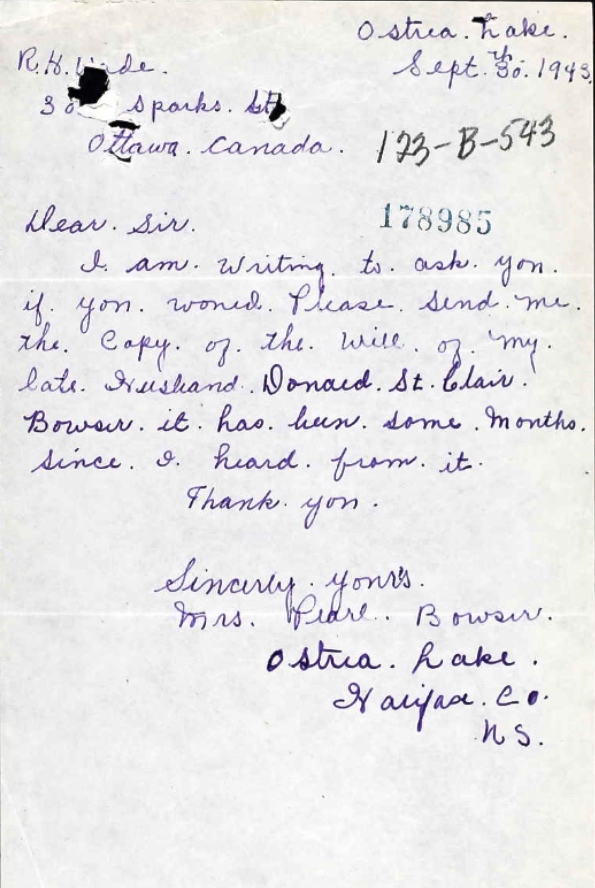 Ostrea. Lake.
R.H. W de. Sept. 30.th 1943.
30 Sparks. St
Ottawa. Canada. 123-B-543
Dear. Sir. 178985
I. am. Writing. to. ask. you.
if. you. woued. Please. Send. me.
the. Copy. of. the. Will. of. my.
late. Husband. Donaed. St. Clair.
Bowser. it. has. been. some. Months.
since. I. heard. from. it.
Thank. you.
Sincerly. yours.
Mrs. Pearl. Bowser.
Ostrea. Lake.
Halifax. Co.
N S.